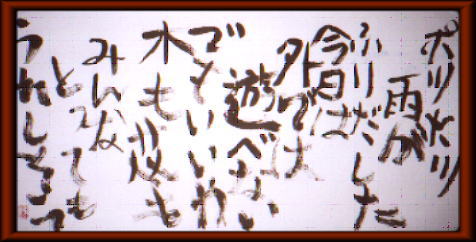 ポツリポツリ
雨が
ふりだした
今日は
外では
遊べない
でもいいわ
木も花も
みんな
とっても
うれしそう